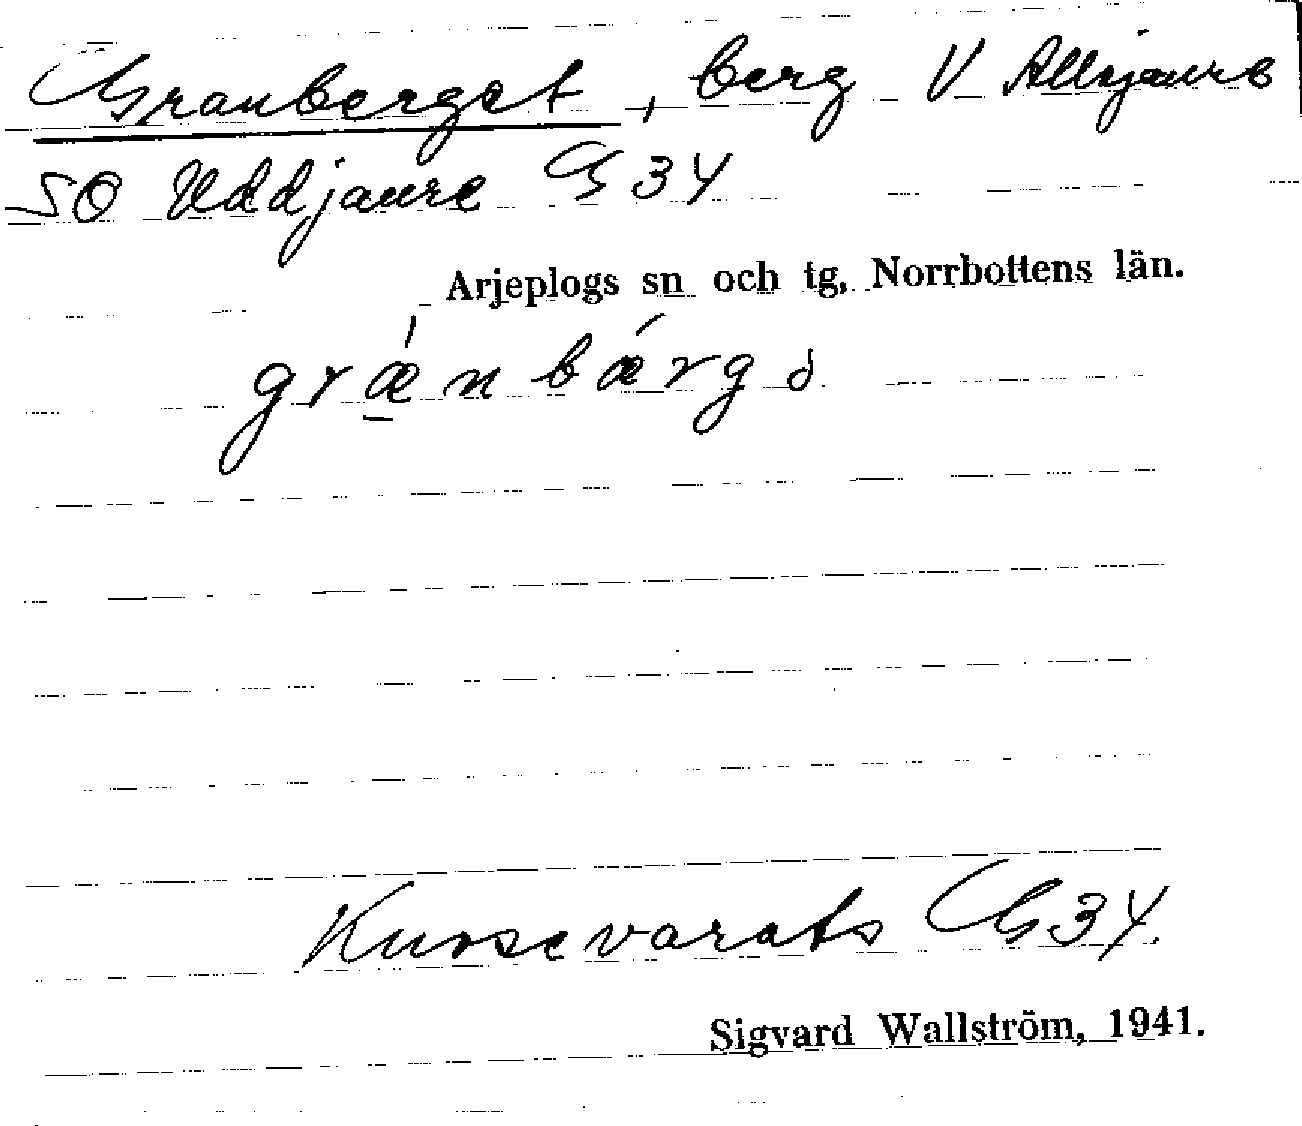 Granberget, berg V Allejaure
SO Uddjaure G 34
Arjeplogs sn och tg, Norrbottens län.
grǽ̱nbǽrgə
G34.
Sigvard Wallström, 1941.